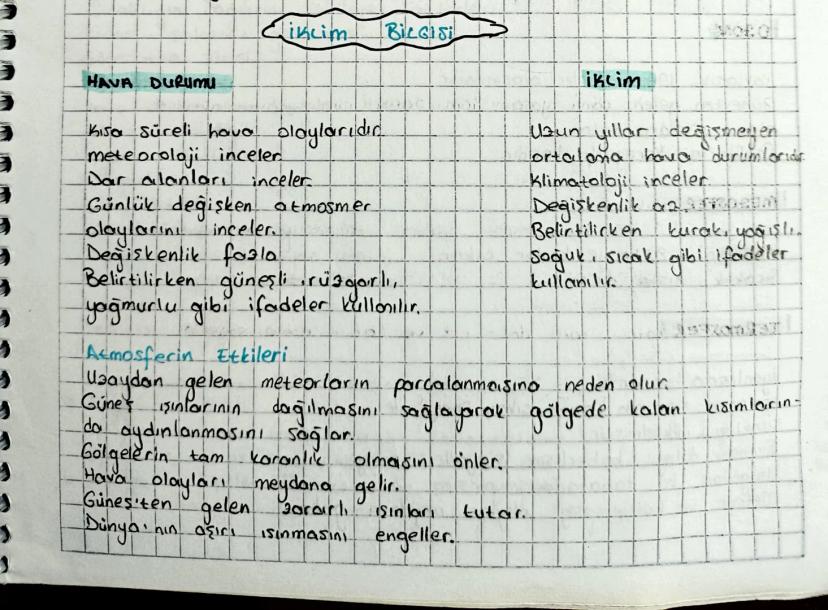 İKLİM BİLGİSİ
HAVA DURUMU
Kısa süreli hava olaylarıdır.
meteoroloji inceler
Dar alanları inceler.
Günlük değişken atmosmer
olaylarını inceler.
Değişkenlik fazla
Belirtilirken güneşli, rüzgarlı,
yağmurlu gibi ifadeler kullanılır.
İKLİM
Uzun yıllar değişmeyen
ortalama hava durumlarıdır
Klimatoloji inceler.
Değişkenlik az.
Belirtilirken kurak, yağışlı.
soğuk, sıcak gibi ifadeler
kullanılır.
Atmosferin Etkileri
Uzaydan gelen meteorların parçalanmasına neden olur.
Güneş ışınlarının dağılmasını sağlayarak gölgede kalan kısımların-
da aydınlanmasını sağlar.
Gölgelerin tam karanlık olmasını önler.
Hava olayları meydana gelir.
Güneş'ten gelen zararlı ışınları tutar.
Dünya'nın aşırı ısınmasını engeller.